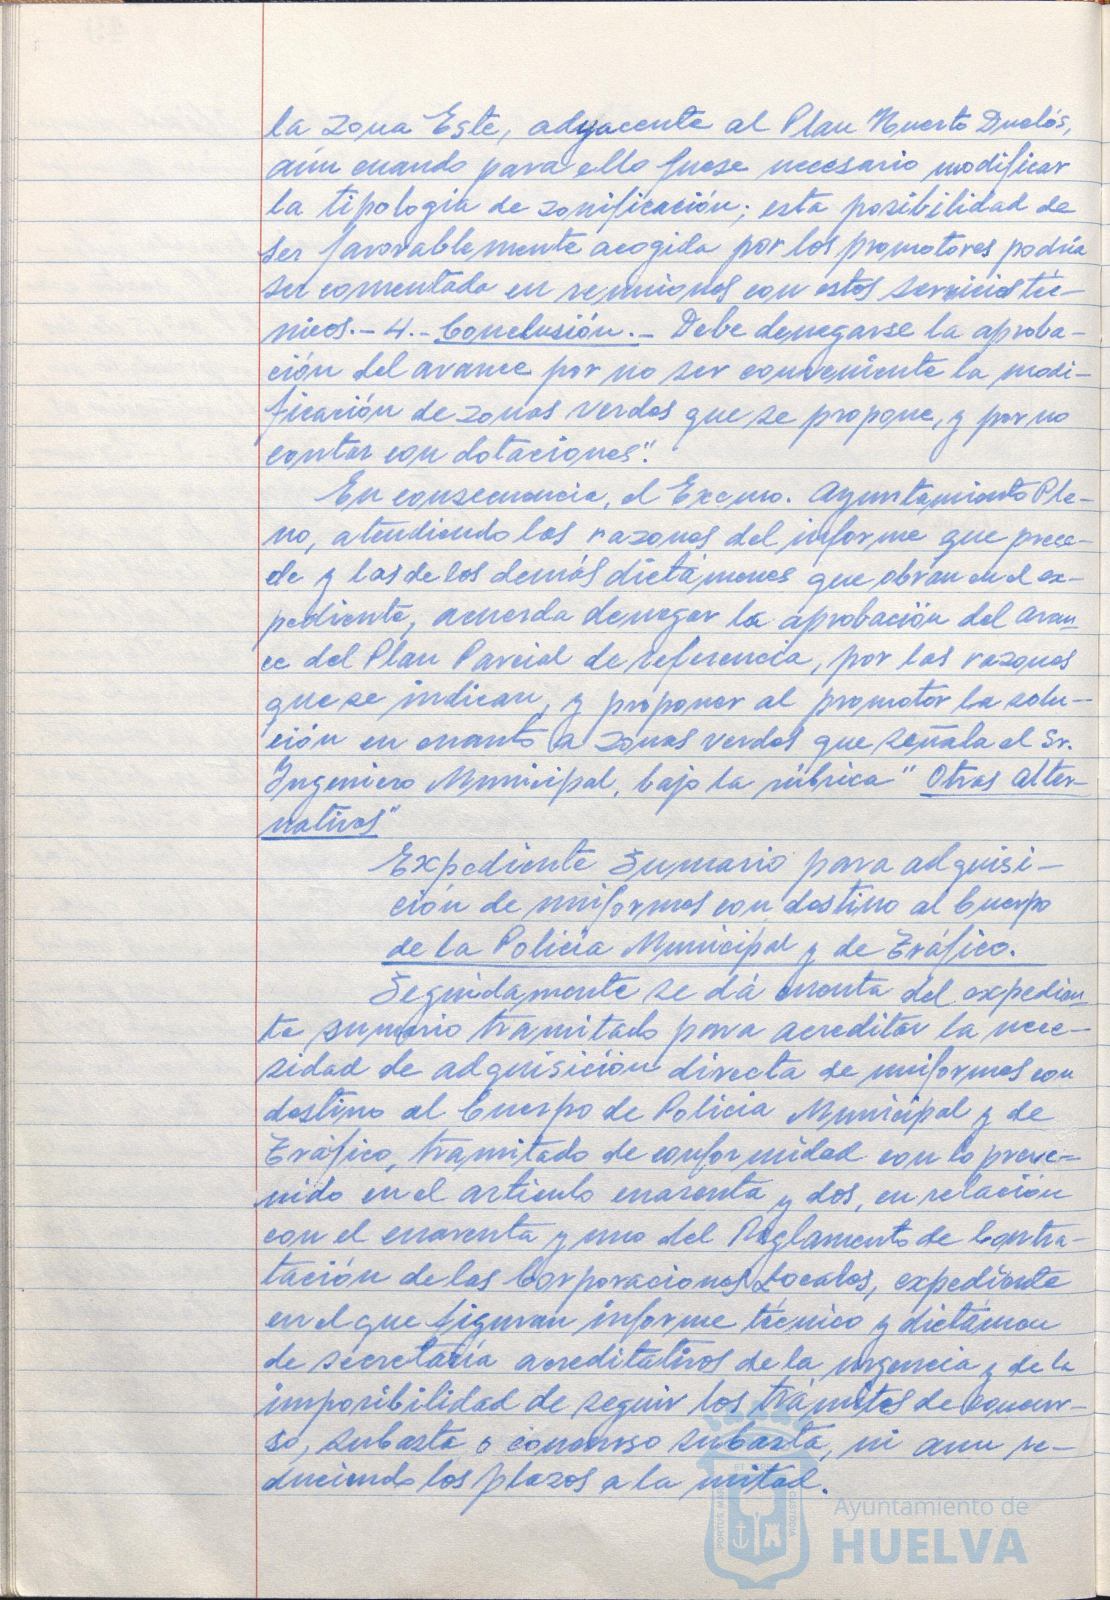 la zona Este, adyacente al Plan Huerto Duclós,
aún cuando para ello fuese necesario modificar
la tipología de zonificación; esta posibilidad de
ser favorablemente acogida por los promotores podría
ser comentada en reuniones con estos servicios téc-
nicos.- 4.- Conclusión.- Debe denegarse la aproba-
ción del avance por no ser conveniente la modi-
ficación de zonas verdes que se propone, y por no
contar con dotaciones".
En consecuencia, el Excmo. Ayuntamiento Ple-
no, atendiendo las razones del informe que prece-
de y las de los demás dictámenes que obran en el ex-
pediente, acuerda denegar la aprobación del avan-
ce del Plan Parcial de referencia, por las razones
que se indican, y proponer al promotor la solu-
ción en cuanto a zonas verdes que señala el Sr.
Ingeniero Municipal, bajo la rúbrica "Otras Alter-
nativas"
Expediente Sumario para adquisi-
ción de uniformes con destino al Cuerpo
de la Policía Municipal y de Tráfico.
Seguidamente se dá cuenta del expedien-
te sumario tramitado para acreditar la nece-
sidad de adquisición directa de uniformes con
destino al Cuerpo de Policía Municipal y de
Tráfico, tramitado de conformidad con lo preve-
nido en el artículo cuarenta y dos, en relación
con el cuarenta y uno del Reglamento de Contra-
tación de las Corporaciones Locales, expediente
en el que figuran informe técnico y dictámen
de secretaría acreditativos de la urgencia y de la
imposibilidad de seguir los trámites de concur-
so, subasta o concurso subasta, ni aun re-
duciendo los plazos a la mitad.
PORTUS MARIS
CUSTODIA
Ayuntamiento de
HUELVA